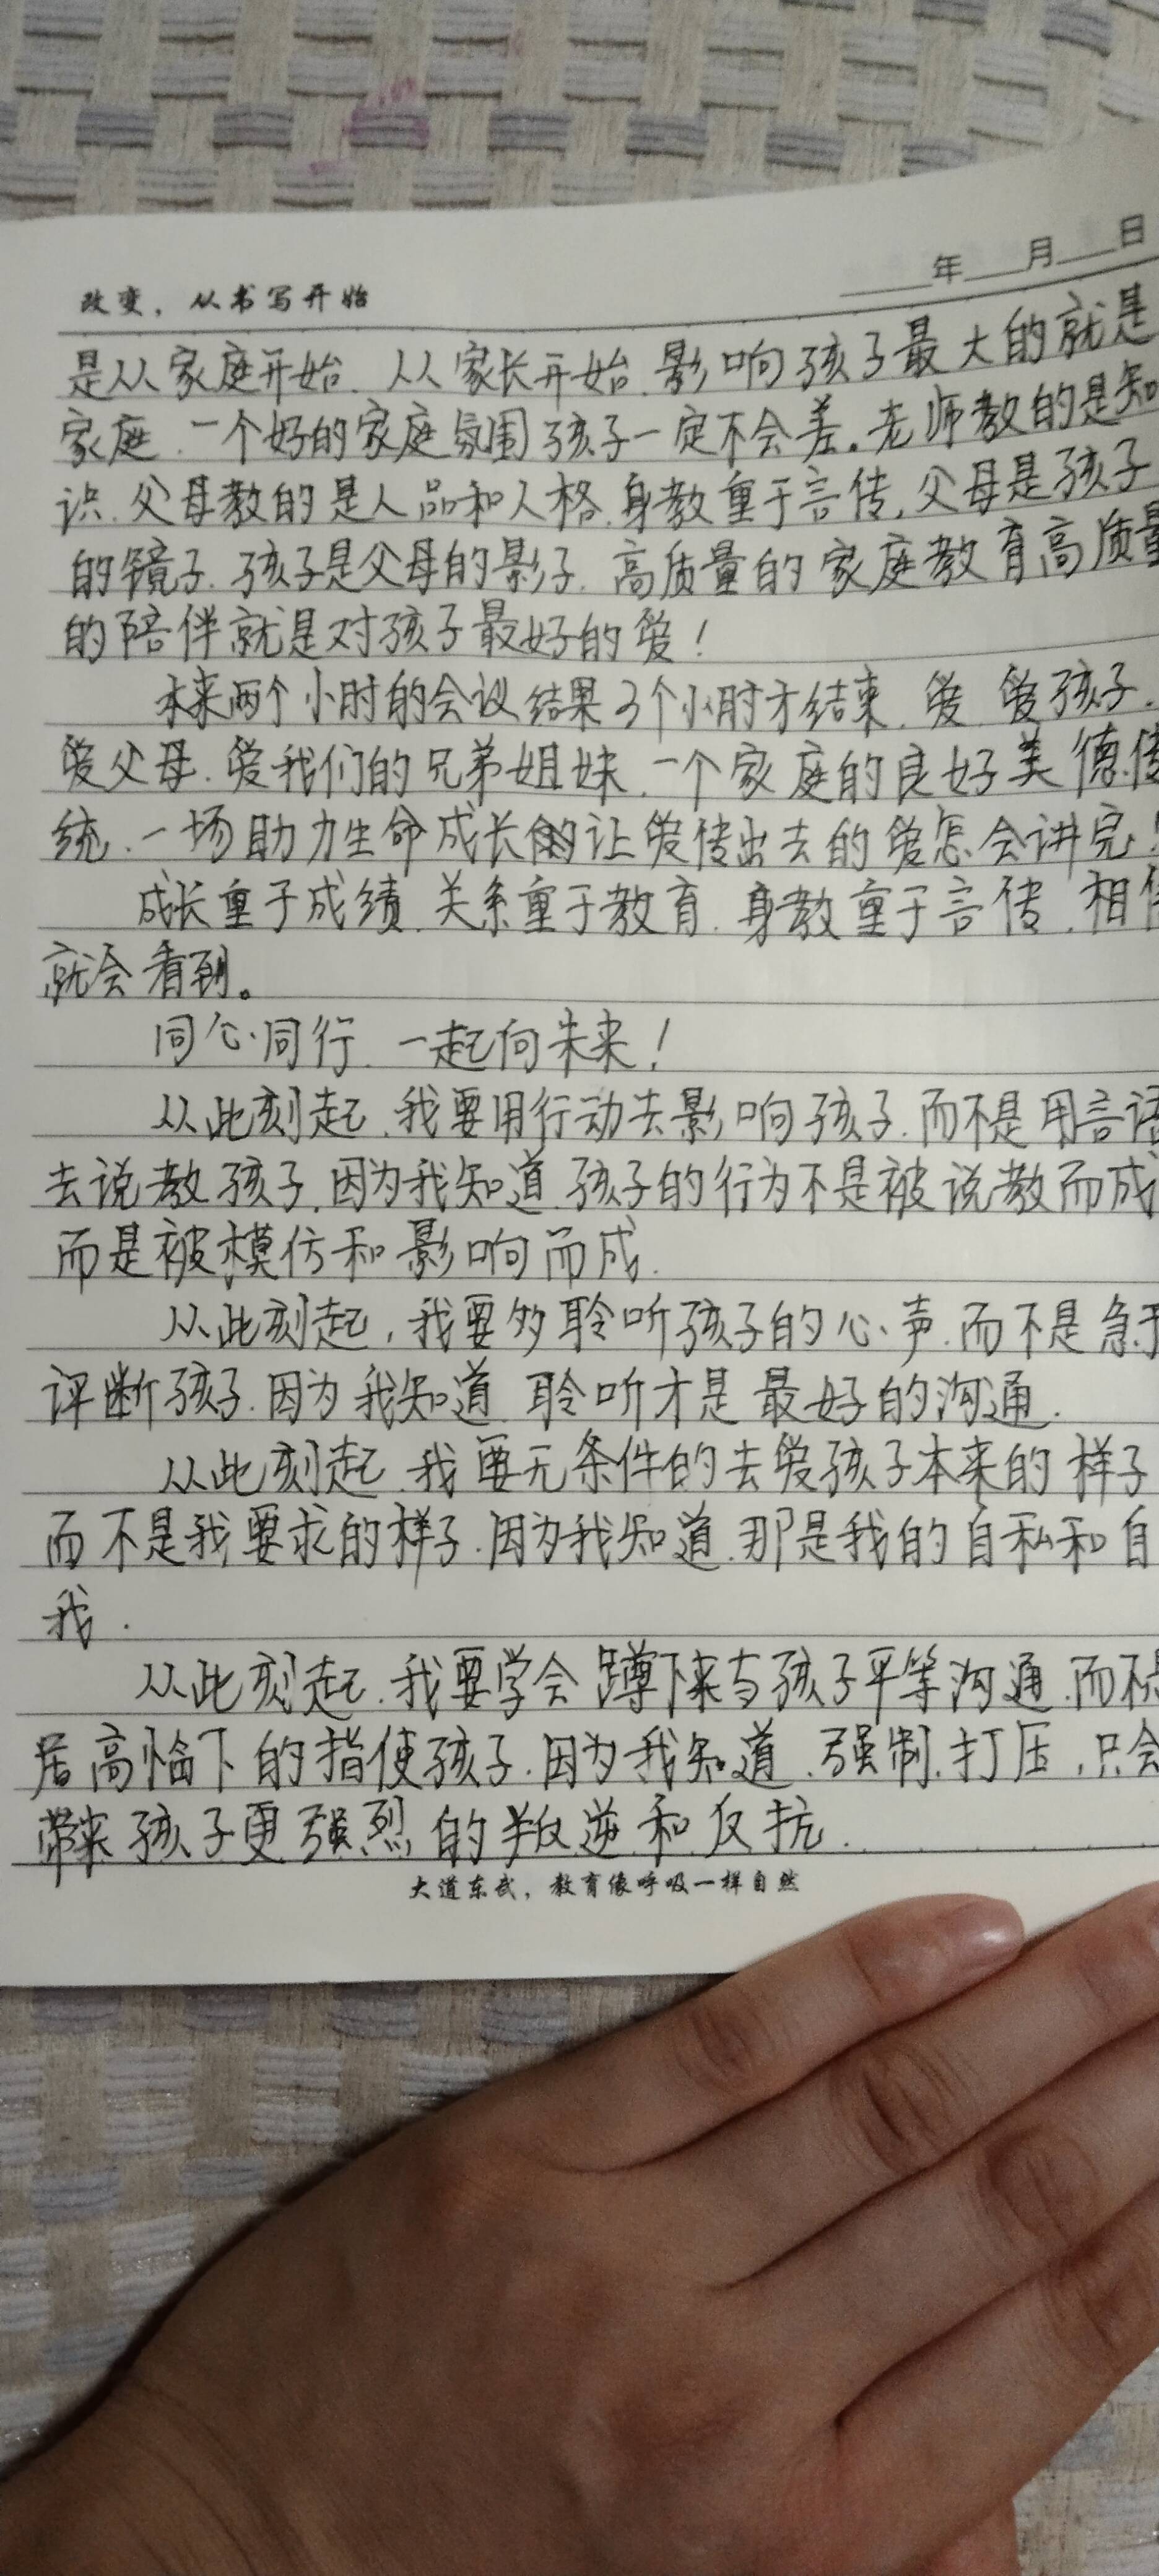 年 月 日
改变，从书写开始
是从家庭开始、从家长开始.影响孩子最大的就是
家庭.一个好的家庭氛围孩子一定不会差。老师教的是知
识.父母教的是人品和人格.身教重于言传,父母是孩子
的镜子.孩子是父母的影子.高质量的家庭教育高质量
的陪伴就是对孩子最好的爱!
本来两个小时的会议结果3个小时才结束.爱.爱孩子.
爱父母.爱我们的兄弟姐妹.一个家庭的良好美德传
统.一场助力生命成长的让爱传出去的爱怎会讲完!
成长重于成绩.关系重于教育.身教重于言传.相信
就会看到。
同心同行.一起向未来!
从此刻起.我要用行动去影响孩子.而不是用言语
去说教孩子.因为我知道.孩子的行为不是被说教而成
而是被模仿和影响而成.
从此刻起,我要多聆听孩子的心声.而不是急于
评断孩子.因为我知道.聆听才是最好的沟通.
从此刻起.我要无条件的去爱孩子本来的样子
而不是我要求的样子.因为我知道.那是我的自私和自
我.
从此刻起.我要学会蹲下来与孩子平等沟通.而不是
居高临下的指使孩子.因为我知道.强制.打压,只会
带来孩子更强烈的叛逆和反抗.
大道东武，教育像呼吸一样自然